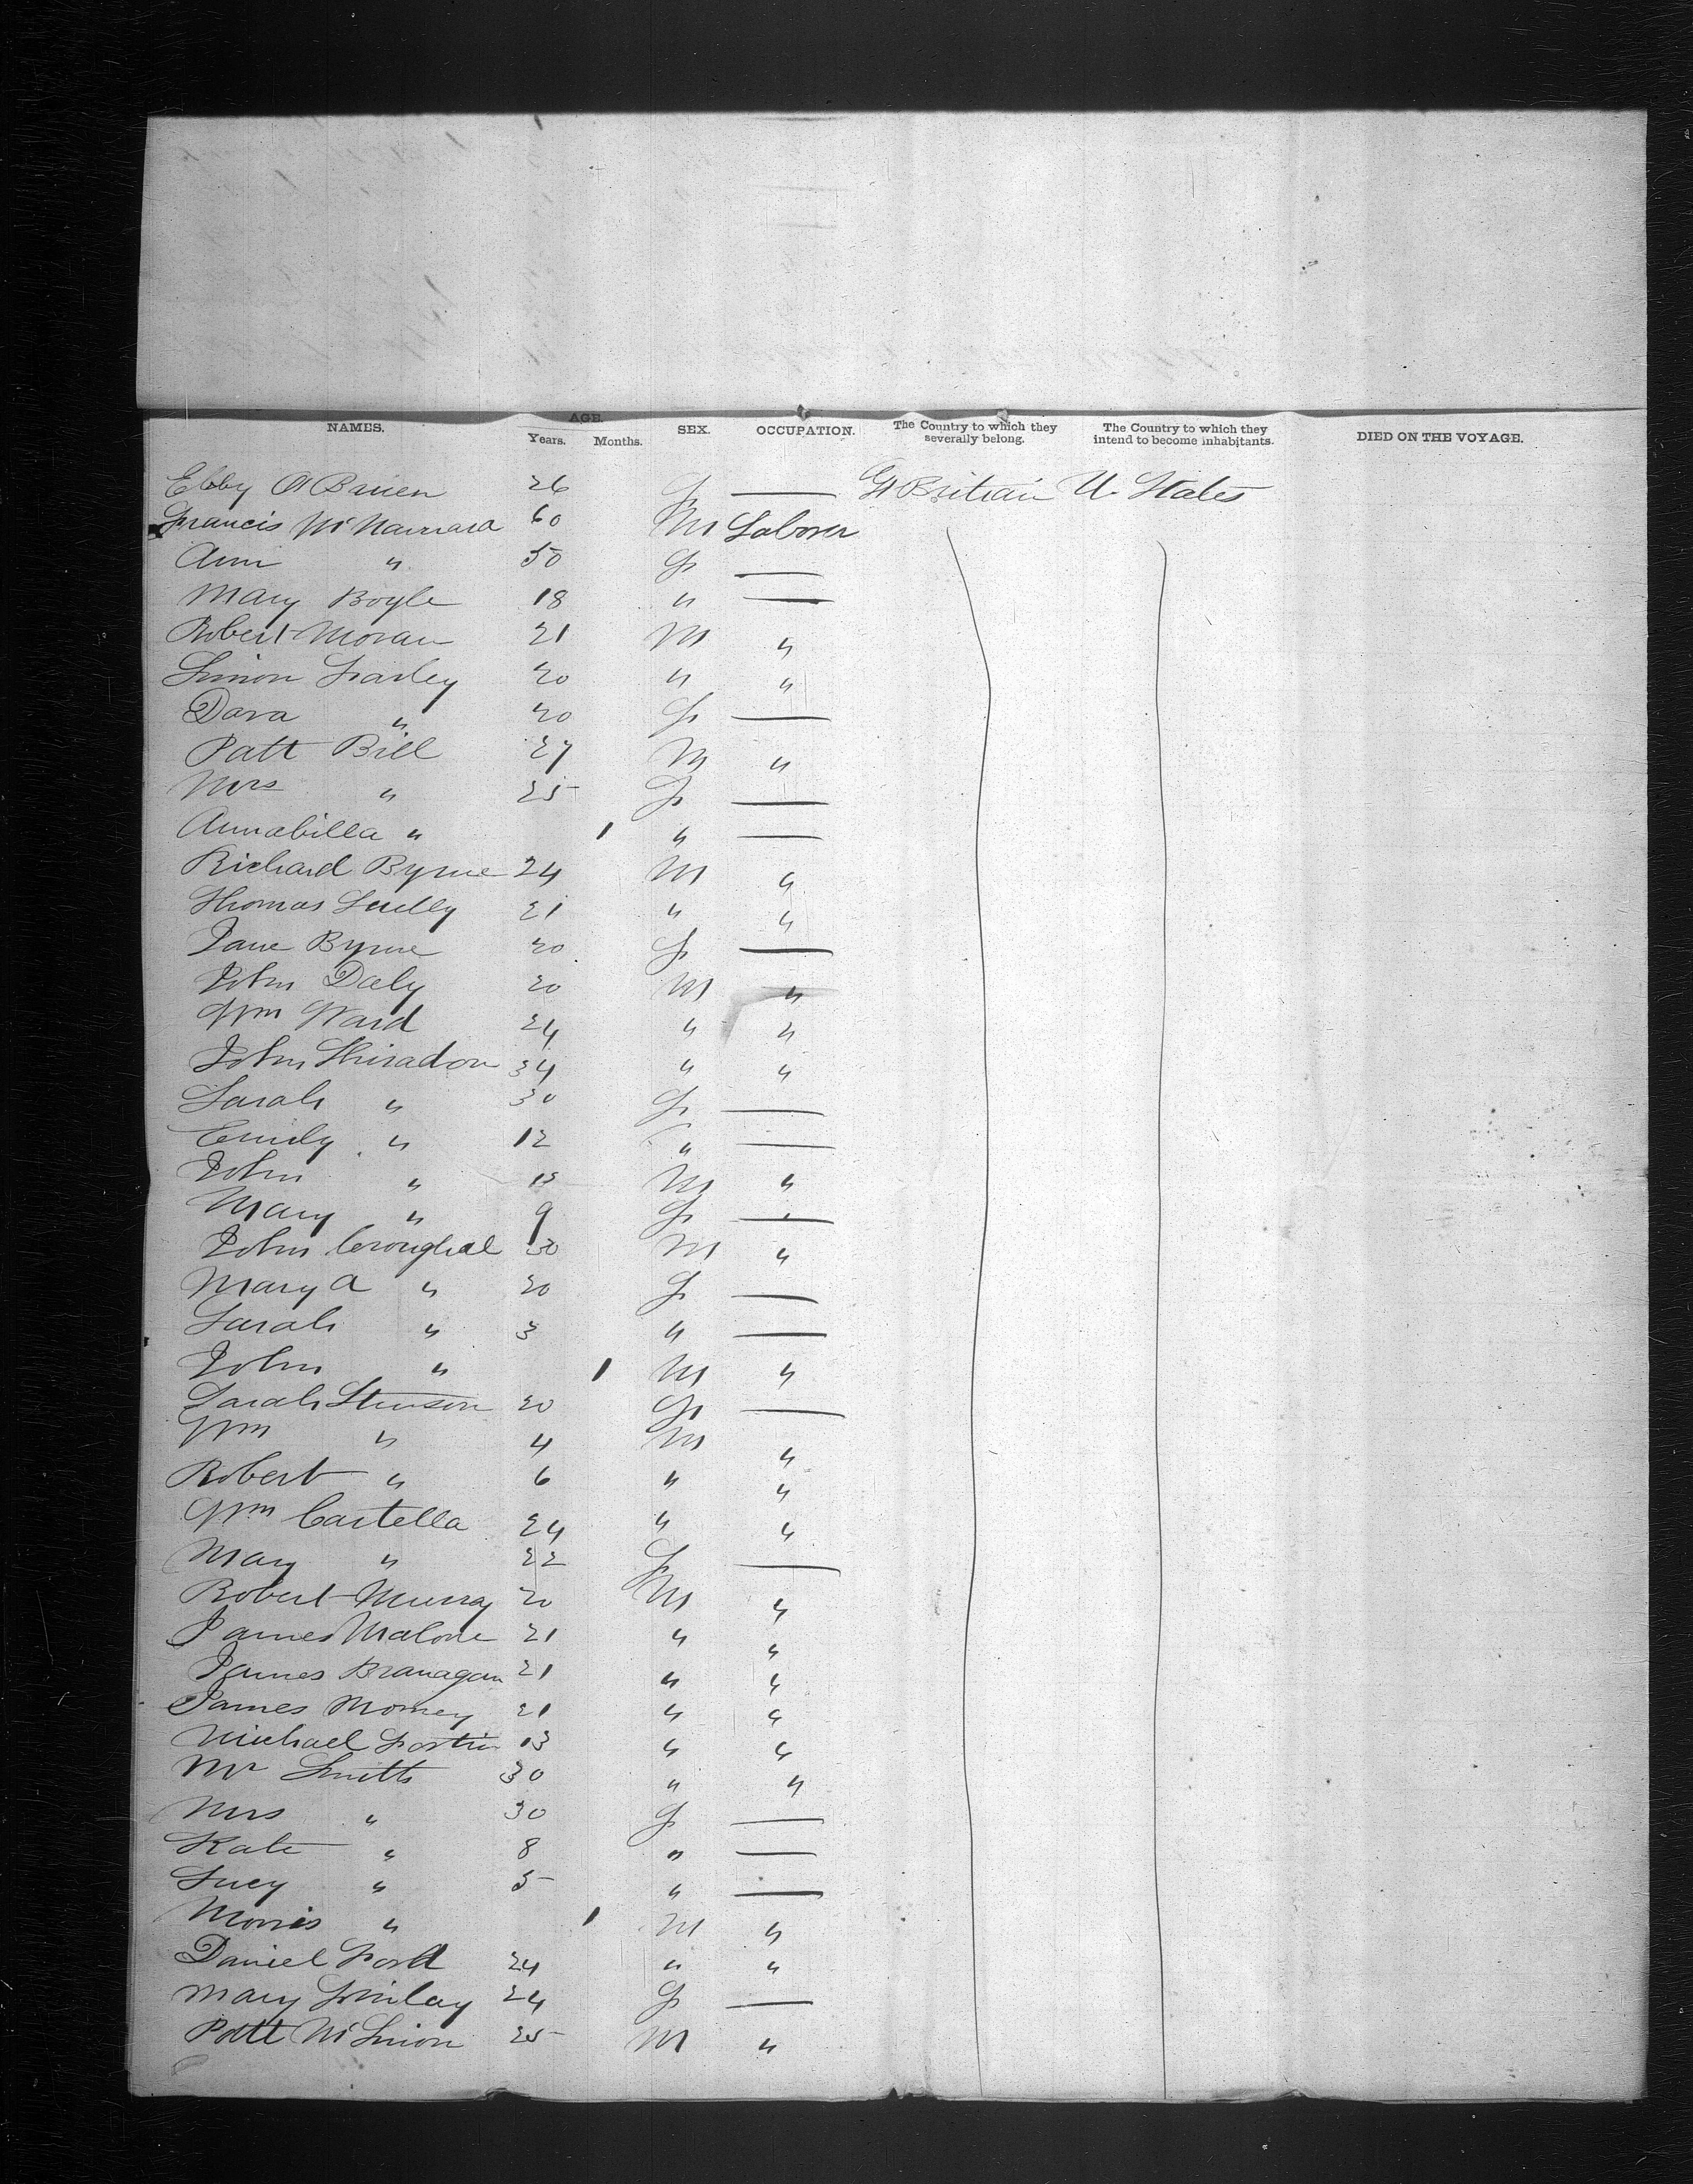 NAMES. AGE. Years. Months. SEX. OCCUPATION. The Country to which they severally belong. The Country to which they intend to become inhabitants. DIED ON THE VOYAGE.
Ebby O'Brien 26 F — Gt Britain U. States
Francis McNamara 60 M Laborer
Ann " 50 F —
Mary Boyle 18 " —
Robert Moran 21 M "
Simon Farley 20 " "
Dora " 20 F —
Patt Bill 27 M "
Mrs " 25 F —
Annabilla " 1 " —
Richard Byrne 24 M "
Thomas Scully 21 " "
Jane Byrne 20 F —
John Daly 20 M "
Wm Ward 24 " "
John 34 " "
Sarah " 30 F —
Emily " 12 " —
John " M "
Mary " 9 F —
John Croughal 30 M "
Mary A " 20 F —
Sarah " 3 " —
John " 1 M "
Sarah Stinson 20 F —
Wm " 4 M "
Robert " 6 " "
Wm Castella 24 " "
Mary " 22 F —
Robert Murray 20 M "
James Malone 21 " "
James Branagan 21 " "
James 21 " "
Michael 13 " "
Mr Smith 30 " "
Mrs " 30 F —
Kate " 8 " —
Lucy " 5 " —
Morris " 1 M "
Daniel Ford 24 " "
Mary Finlay 24 F —
Patt 25 M "